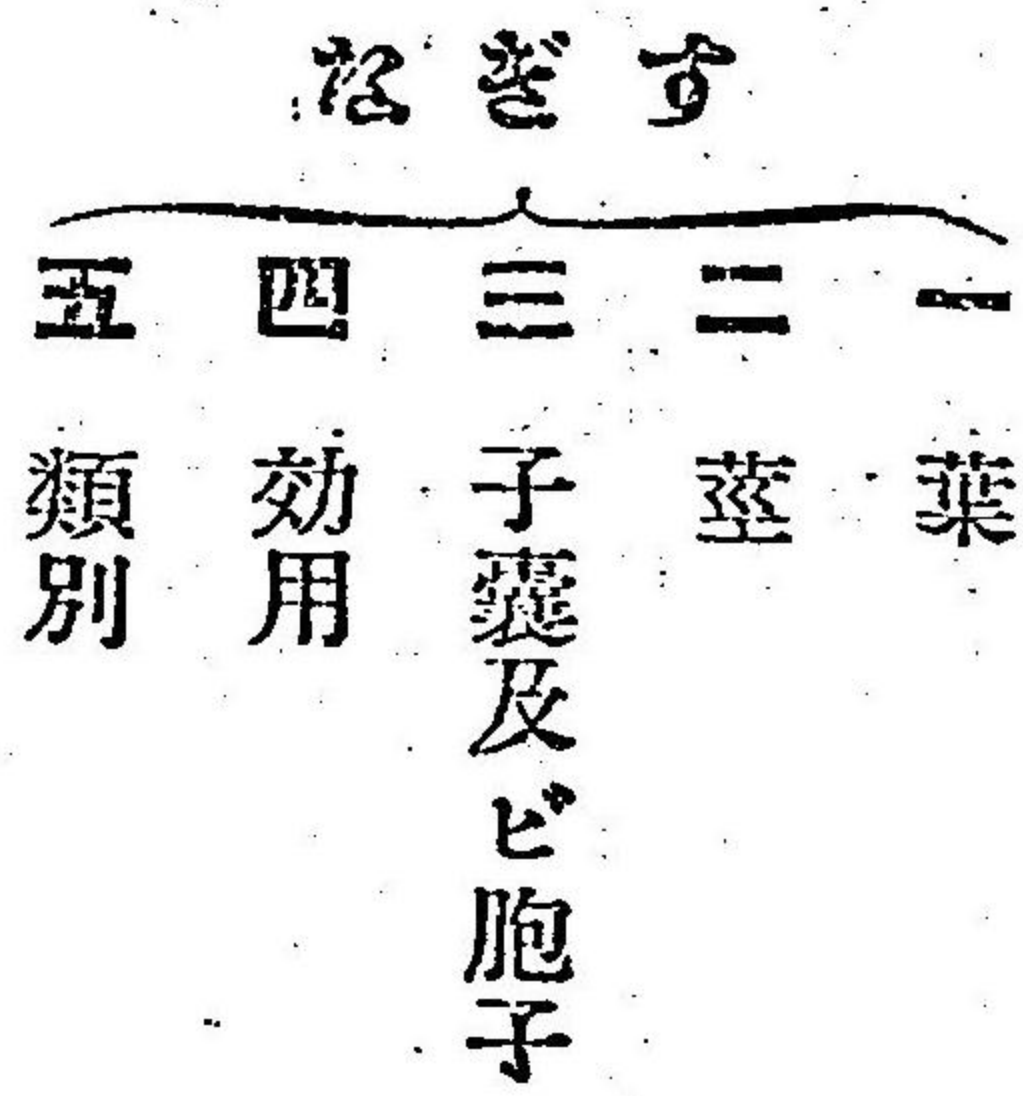 すぎな
一 葉
二 莖
三 子囊及ビ胞子
四 効用
五 類別